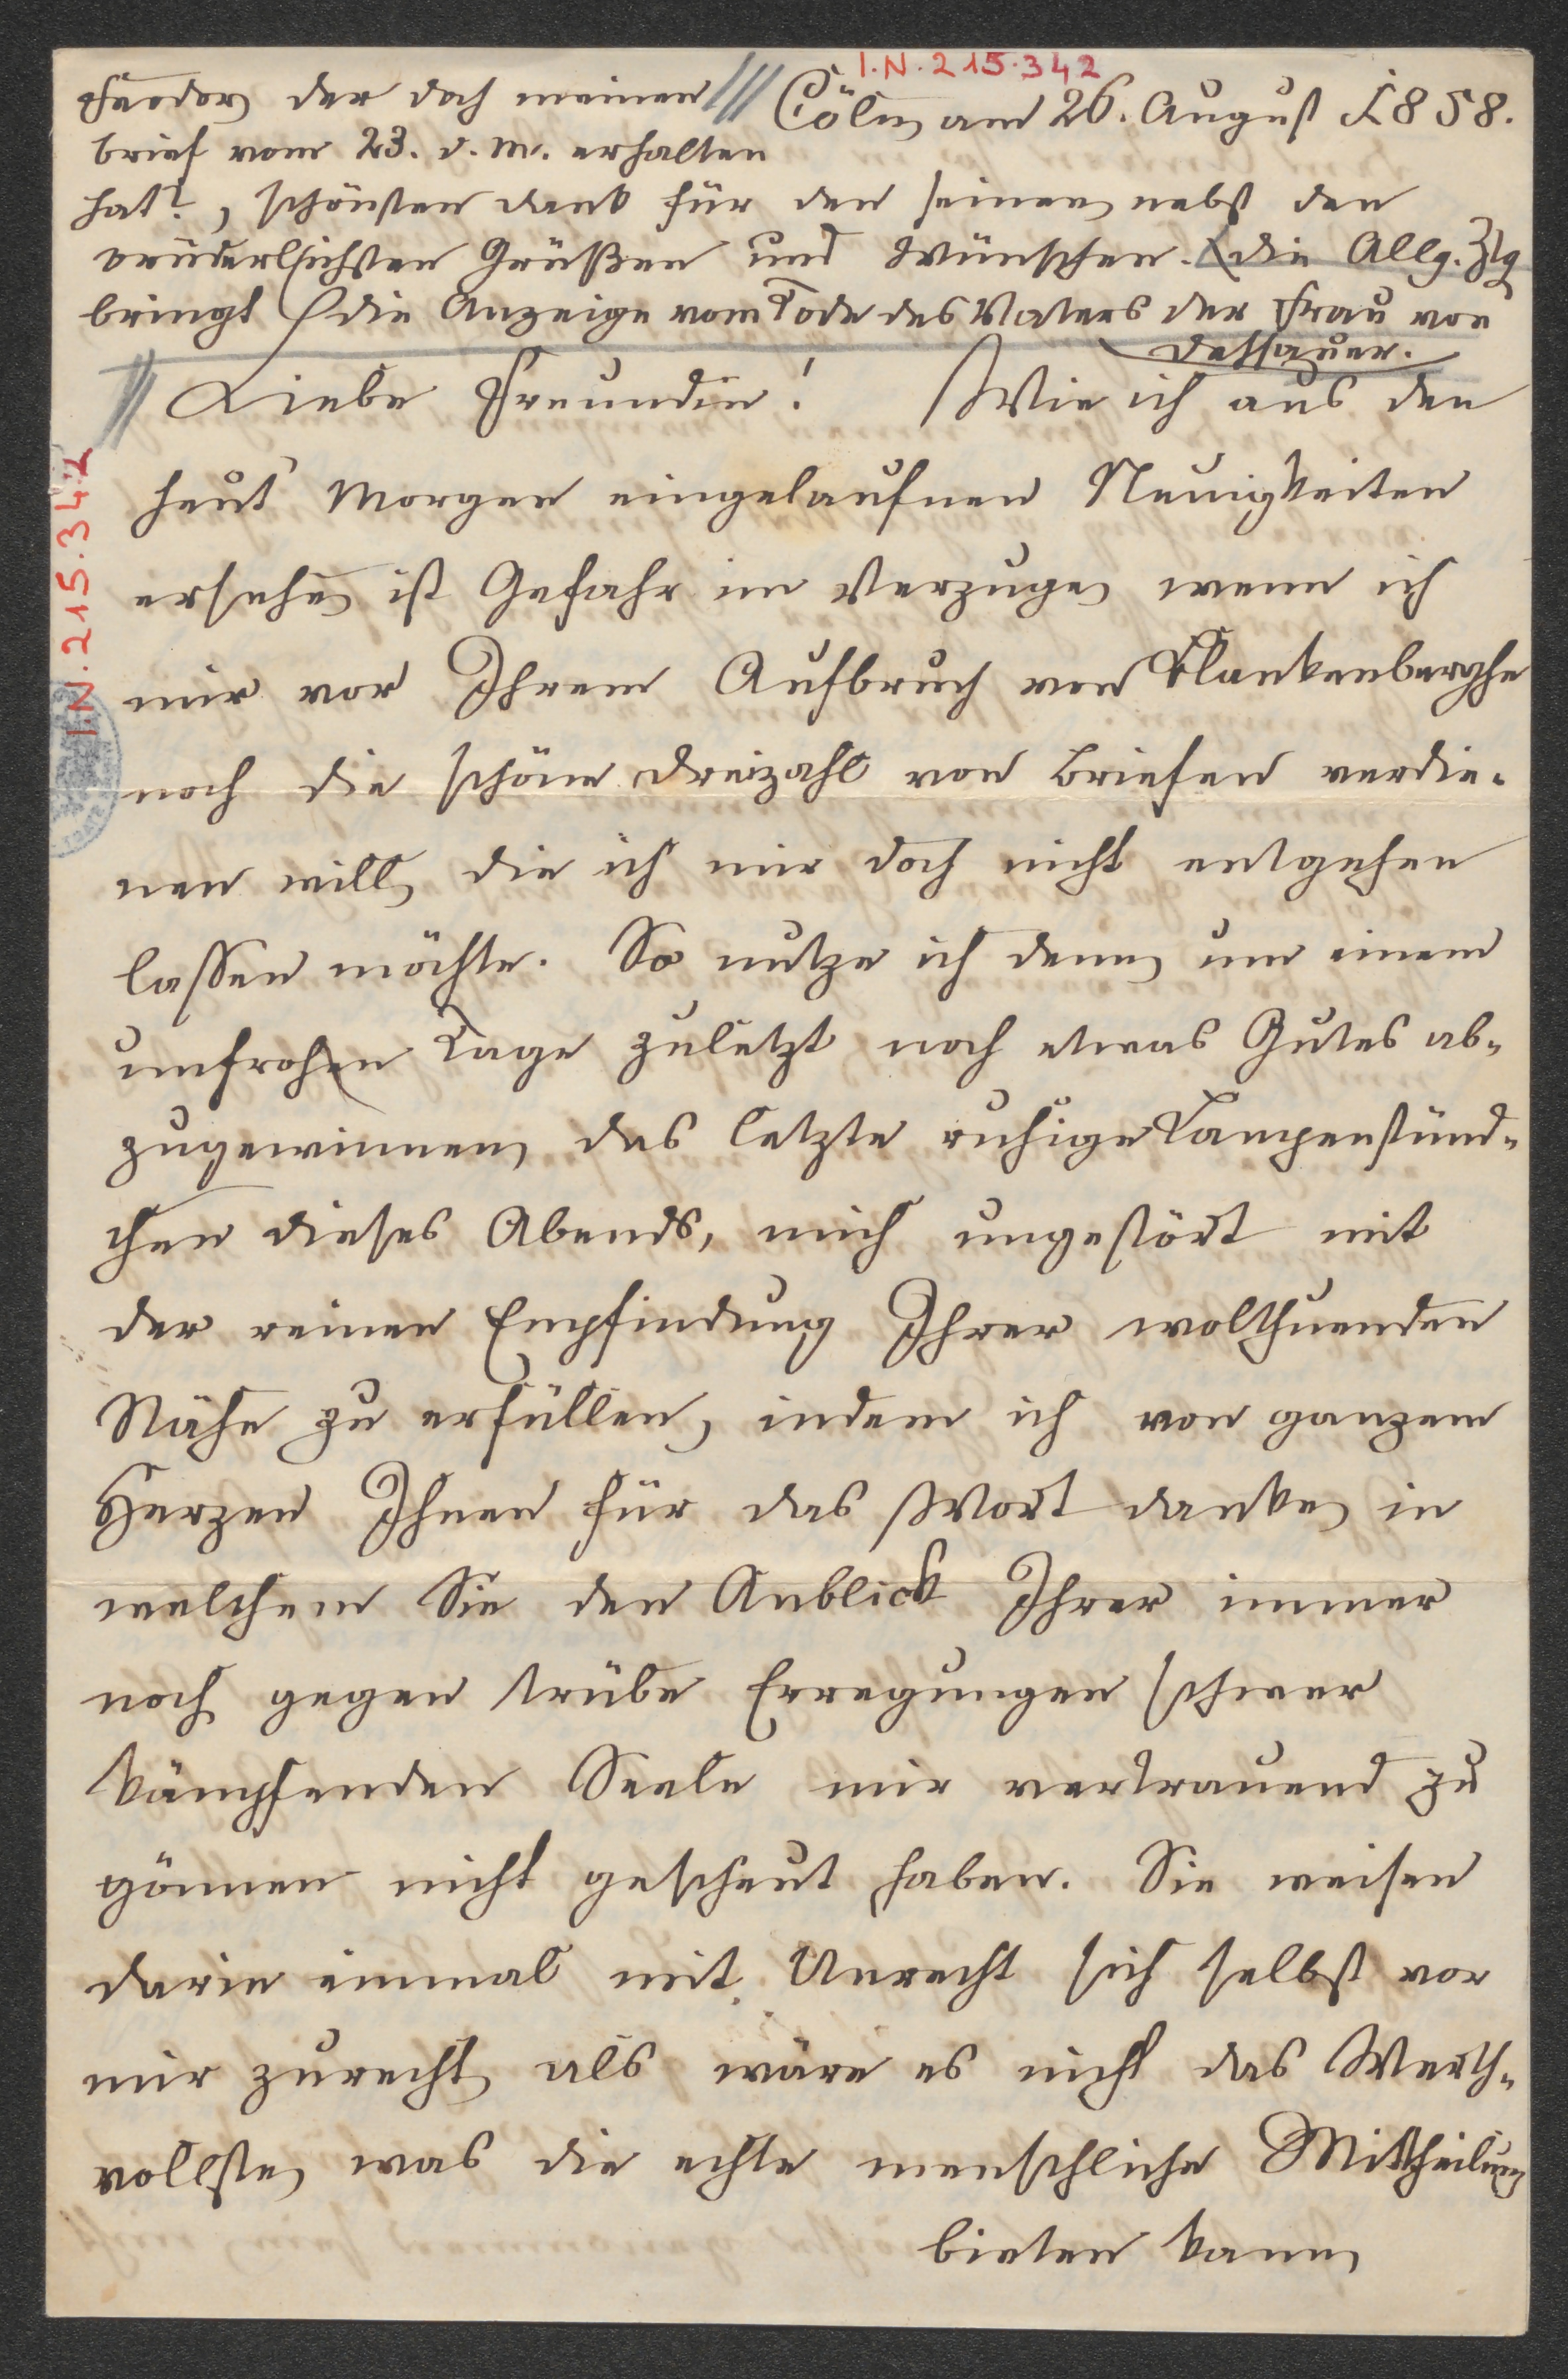 I.N. 215.342
Cöln, am 26. August 1858.
Feodor, der doch meinen
Brief vom 23. d. M. erhalten
hat?, schönsten Dank für den seinen, nebst den
brüderlichsten Grüßen und Wünschen. Die Allg. Ztg
bringt die Anzeige vom Tode des Vaters der Frau von
Dessauer.
Liebe Freundin! Wie ich aus den
heut Morgen eingelaufnen Neuigkeiten
ersehe, ist Gefahr im Verzuge, wenn ich
mir vor Ihrem Aufbruch von Blankenberghe
noch die schöne Dreizahl von Briefen verdie-
nen will, die ich mir doch nicht entgehen
lassen möchte. So nutze ich denn, um einem
unfrohen Tage zuletzt noch etwas Gutes ab-
zugewinnen, das letzte ruhige Lampenstünd-
chen dieses Abends, mich ungestört mit
der reinen Empfindung Ihrer wolthuenden
Nähe zu erfüllen, indem ich von ganzem
Herzen Ihnen für das Wort danke, in
welchem Sie den Anblick Ihrer immer
noch gegen trübe Erregungen schwer
kämpfenden Seele mir vertrauend zu
gönnen nicht gescheut haben. Sie weisen
darin einmal mit Unrecht sich selbst vor
mir zurecht, als wäre es nicht das Werth-
vollste, was die echte menschliche Mittheilung
bieten kann,
I.N. 215.342